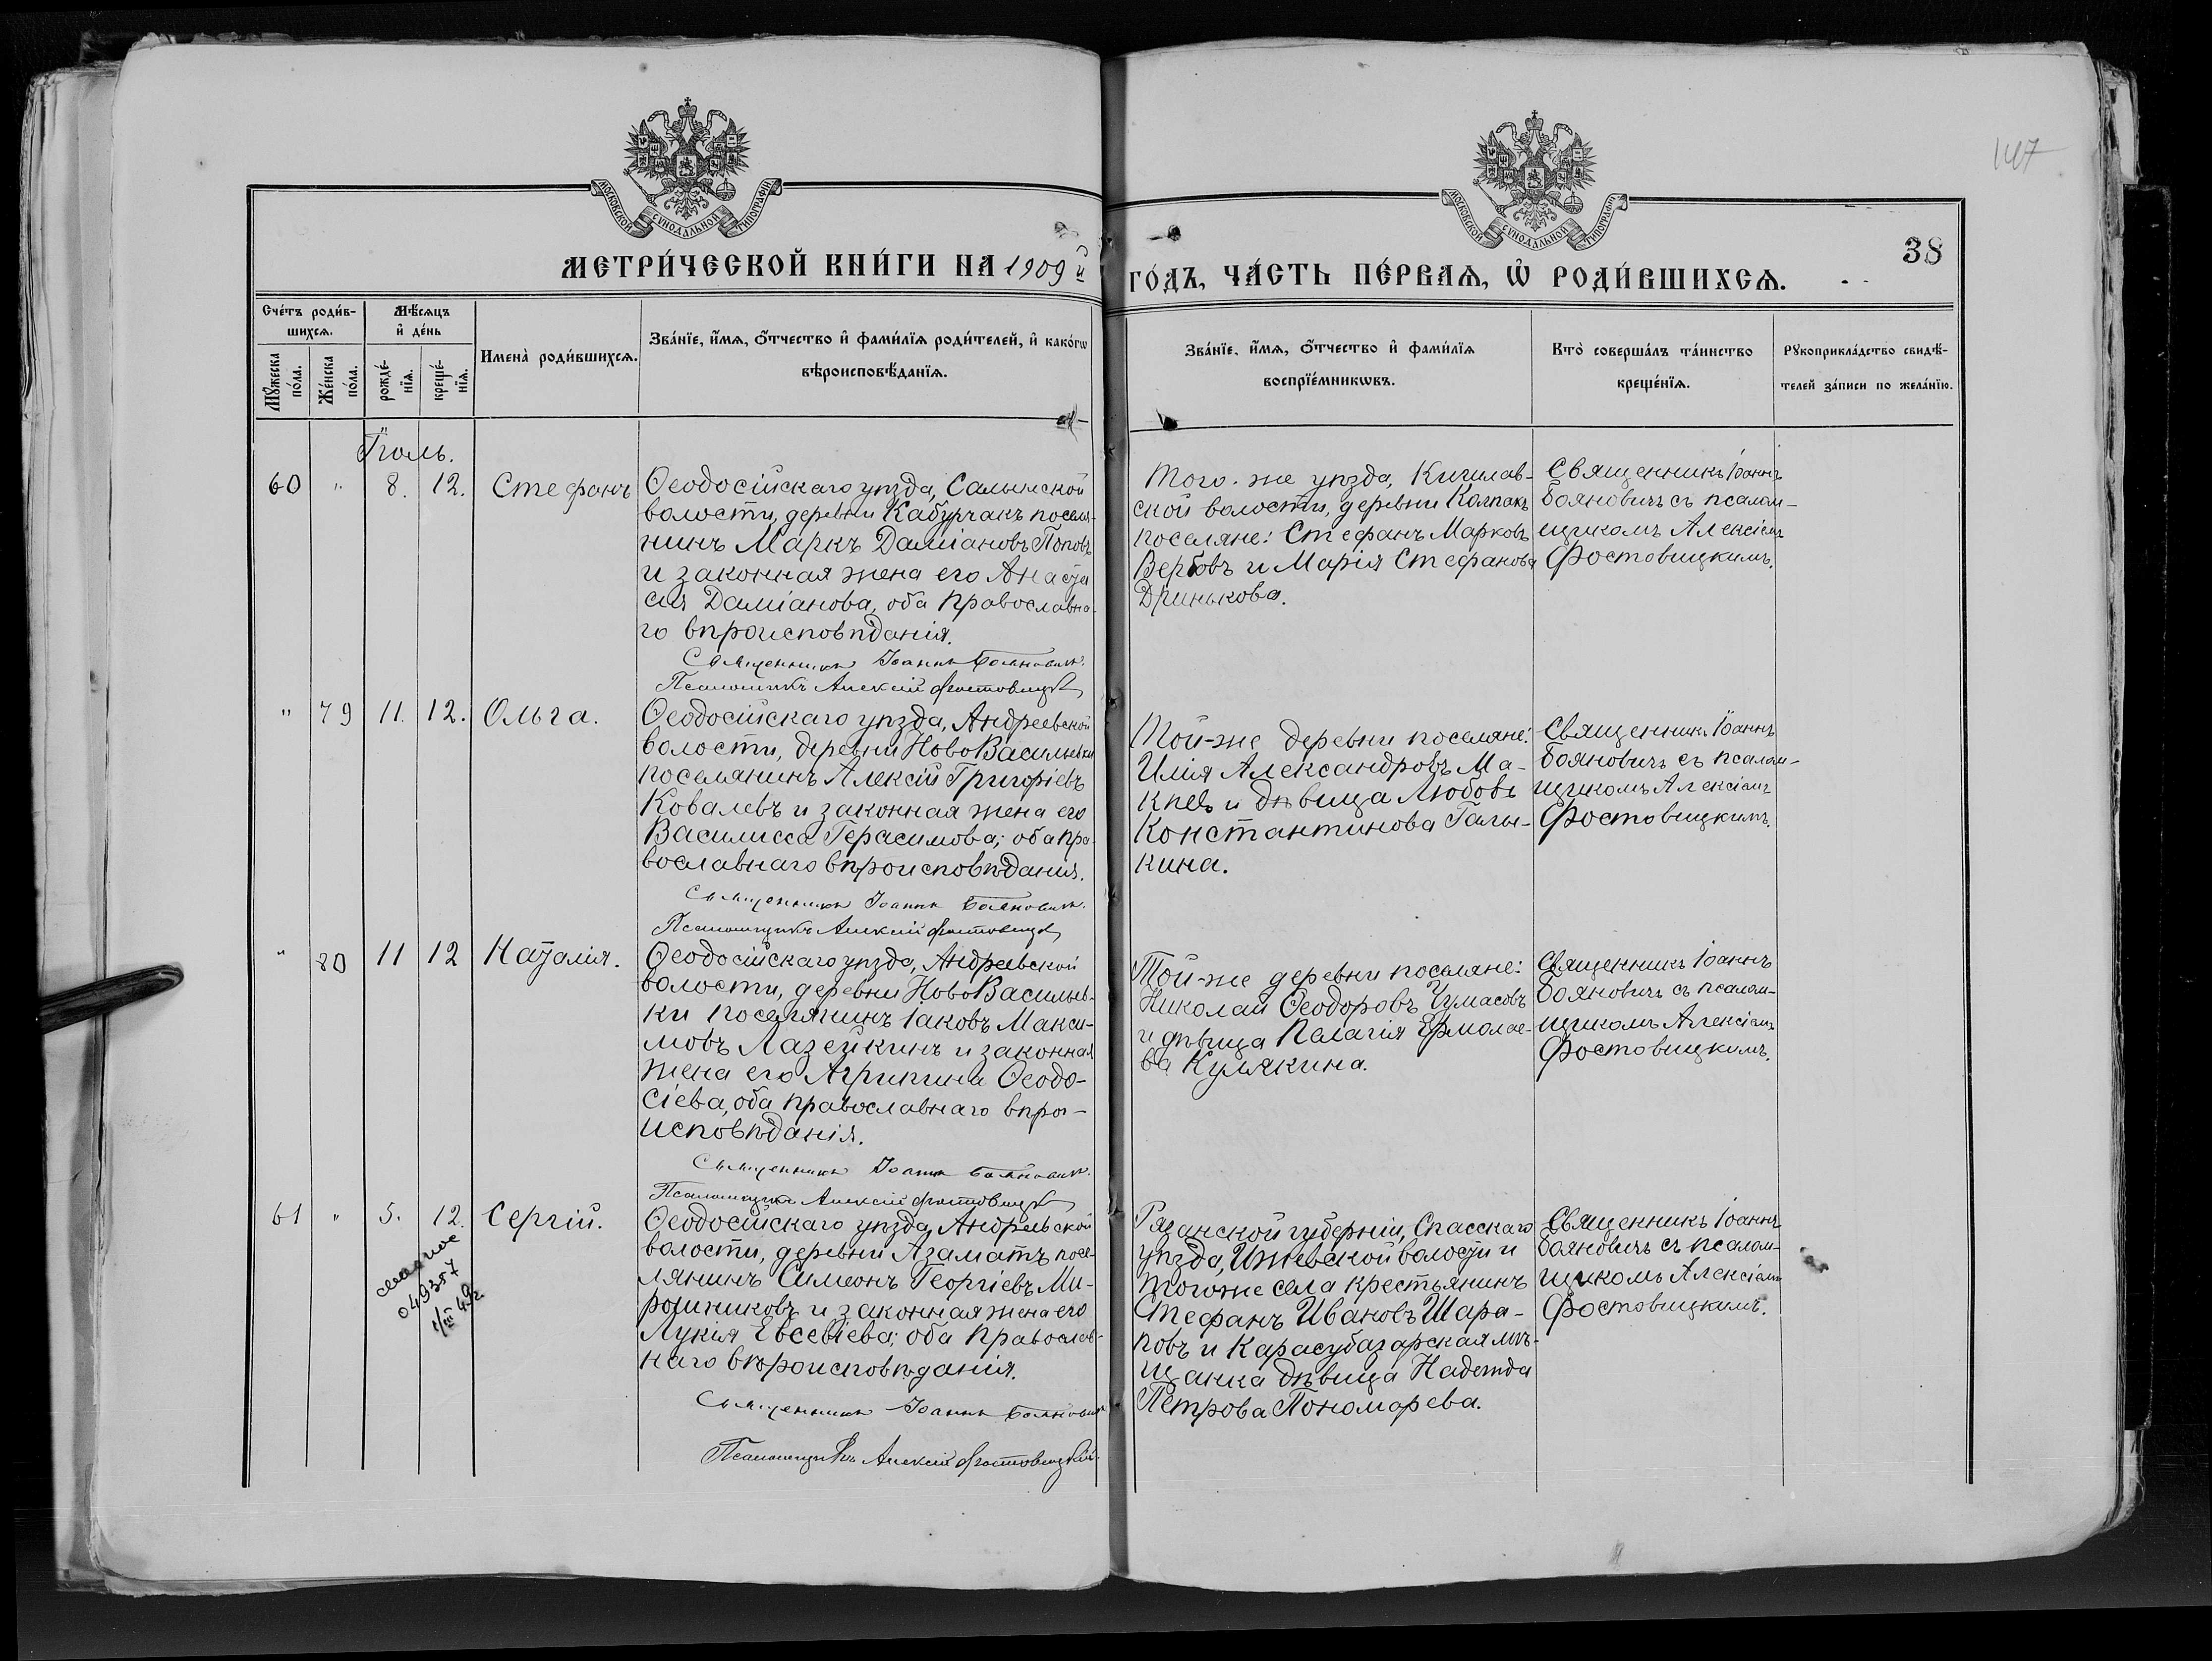 147
38
МОСКОВСКОЙ СѴНОДАЛЬНОЙ ТИПОГРАФІИ.
МОСКОВСКОЙ СѴНОДАЛЬНОЙ ТИПОГРАФІИ.
МЕТРИ́ЧЕСКОЙ КНИ́ГИ НА 1909 й
ГО́ДЪ, ЧА́СТЬ ПЕ́РВАѦ, Ѽ РОДИ́ВШИХСѦ.
Сче́тъ роди́в-
шихсѧ.
Мꙋ́жеска по́ла.
Же́нска по́ла.
Мѣ́сѧцъ
и҆ де́нь
рожде́-
нїѧ.
креще́-
нїѧ.
Имена̀ роди́вшихсѧ.
Зва́нїе, и҆́мѧ, ѻ҆́тчество и҆ фами́лїѧ роди́телей, и҆ како́гѡ
вѣроисповѣ́данїѧ.
Зва́нїе, и҆́мѧ, ѻ҆́тчество и҆ фами́лїѧ
воспрїе́мникѡвъ.
Кто̀ соверша́лъ та́инство
креще́нїѧ.
Рꙋкоприкла́дство свидѣ́-
телей за́писи по жела́нїю.
Іюль.
60 " 8. 12. Стефанъ
Ѳеодосійскаго уѣзда, Салынской
волости, деревни Кабурчакъ поселя-
нинъ Маркъ Даміановъ Поповъ
и законная жена его Анаста
сія Даміанова, оба православна-
го вѣроисповѣданія.
Священникъ Іоаннъ Бояновичъ.
Псаломщикъ Алексій Фостовицкій
Того-же уѣзда, Кишлав-
ской волости, деревни Колпакъ
поселяне: Стефанъ Марковъ
Вербовъ и Марія Стефанова
Дринькова.
Священникъ Іоаннъ
Бояновичъ съ псалом-
щикомъ Алексіемъ
Фостовицкимъ.
" 79 11. 12. Ольга.
Ѳеодосійскаго уѣзда, Андреевской
волости, деревни НовоВасильевки
поселянинъ Алексій Григоріевъ
Ковалевъ и законная жена его
Василисса Герасимова; оба пра
вославнаго вѣроисповѣданія.
Священникъ Іоаннъ Бояновичъ.
Псаломщикъ Алексій Фостовицкій
Той-же деревни поселяне:
Илія Александровъ Ма-
кѣевъ и дѣвица Любовь
Константинова Галы-
кина.
Священникъ Іоаннъ
Бояновичъ съ псалом-
щикомъ Алексіемъ
Фостовицкимъ.
" 80 11 12 Наталія.
Ѳеодосійскаго уѣзда, Андреевской
волости, деревни НовоВасильев-
ки поселянинъ Іаковъ Макси-
мовъ Лазейкинъ и законная
жена его Агрипина Ѳеодо-
сіева, оба православнаго вѣро-
исповѣданія.
Священникъ Іоаннъ Бояновичъ.
Псаломщикъ Алексій Фостовицкій
Той-же деревни поселяне:
Николай Ѳеодоровъ Чумасовъ
и дѣвица Пелагія Ермолае-
ва Кулякина.
Священникъ Іоаннъ
Бояновичъ съ псалом-
щикомъ Алексіемъ
Фостовицкимъ.
61 " 5. 12. Сергій.
049357
1/III 49г
Ѳеодосійскаго уѣзда, Андреевской
волости, деревни Азаматъ посе-
лянинъ Симеонъ Георгіевъ Ми-
рошниковъ и законная жена его
Лукія Евсевіева; оба православ-
наго вѣроисповѣданія.
Священникъ Іоаннъ Бояновичъ
Псаломщикъ Алексій Фостовицкій.
Рязанской губерніи, Спасскаго
уѣзда, Ижевской волости и
тогоже села крестьянинъ
Стефанъ Ивановъ Шара-
повъ и Карасубазарская мѣ-
щанка дѣвица Надежда
Петрова Пономарева.
Священникъ Іоаннъ
Бояновичъ съ псалом-
щикомъ Алексіемъ
Фостовицкимъ.